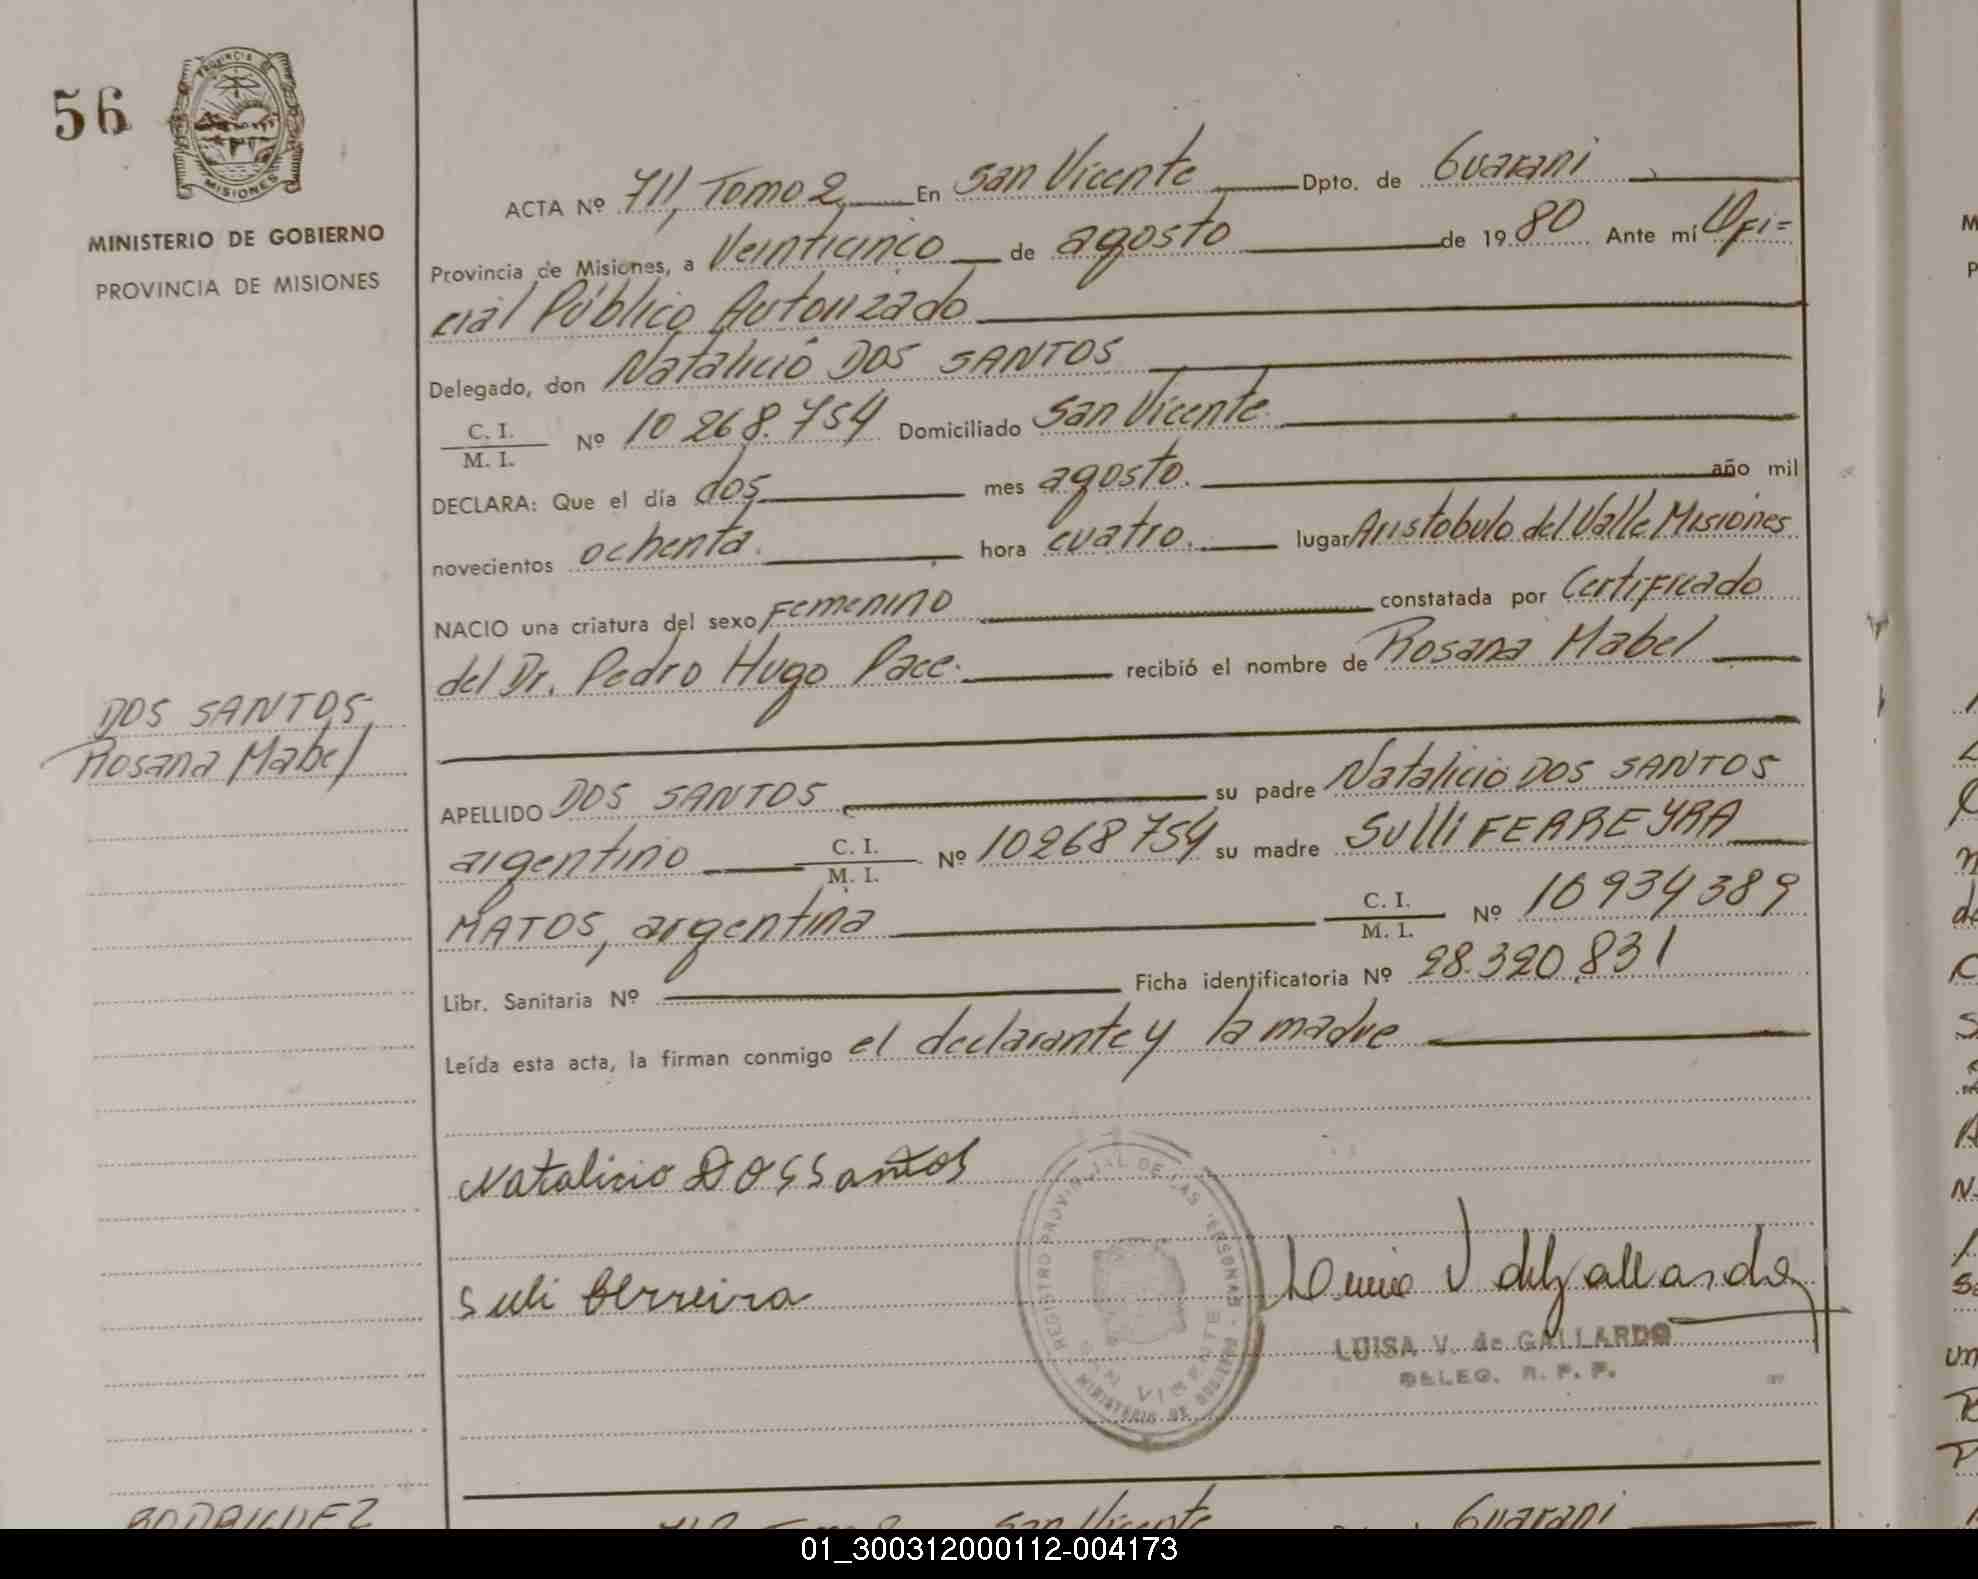 56
PROVINCIA DE
MISIONES
MINISTERIO DE GOBIERNO
PROVINCIA DE MISIONES
ACTA Nº 711, Tomo 2 En San Vicente Dpto. de Guarani
Provincia de Misiones, a Veinticinco de agosto de 1980 Ante mí Ofi=
cial Público Autorizado
Delegado, don Natalicio DOS SANTOS
C. I.
M. I. Nº 10 268.754 Domiciliado San Vicente
DECLARA: Que el día dos mes agosto. año mil
novecientos ochenta. hora cuatro. lugar Aristobulo del Valle Misiones
NACIO una criatura del sexo Femenino constatada por Certificado
del Dr. Pedro Hugo Pace. recibió el nombre de Rosana Mabel
DOS SANTOS,
Rosana Mabel
APELLIDO DOS SANTOS su padre Natalicio DOS SANTOS
argentino C. I.
M. I. Nº 10268754 su madre Sulli FERREYRA
MATOS, argentina C. I.
M. I. Nº 16934389
Libr. Sanitaria Nº Ficha identificatoria Nº 28.320.831
Leída esta acta, la firman conmigo el declarante y la madre
Natalicio DOS Santos
REGISTRO PROVINCIAL DE LAS PERSONAS
SAN VICENTE
MINISTERIO DE GOBIERNO
Suli ferreira
Luisa V de Gallardo
LUISA V. de GALLARDO
DELEG. R. P. P.
RODRIGUEZ
712 Tomo 2 San Vicente Guarani
01_300312000112-004173